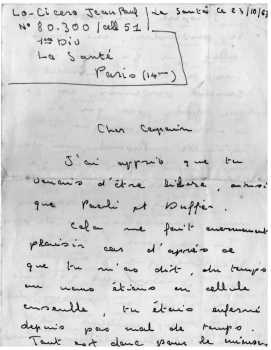 Lo-Cicero Jean Paul / La Santé ce 23/10/6
N° 80.300 / cell 51
1ère Div
La Santé
Paris (14ème)
Cher
J'ai appris que tu
venais d'être libéré, ainsi
que Paoli et Duffer.
Cela me fait énormément
plaisir car d'après ce
que tu m'as dit, du temps
où nous étions en cellule
ensemble, tu étais enfermé
depuis pas mal de temps.
Tout est donc pour le mieux